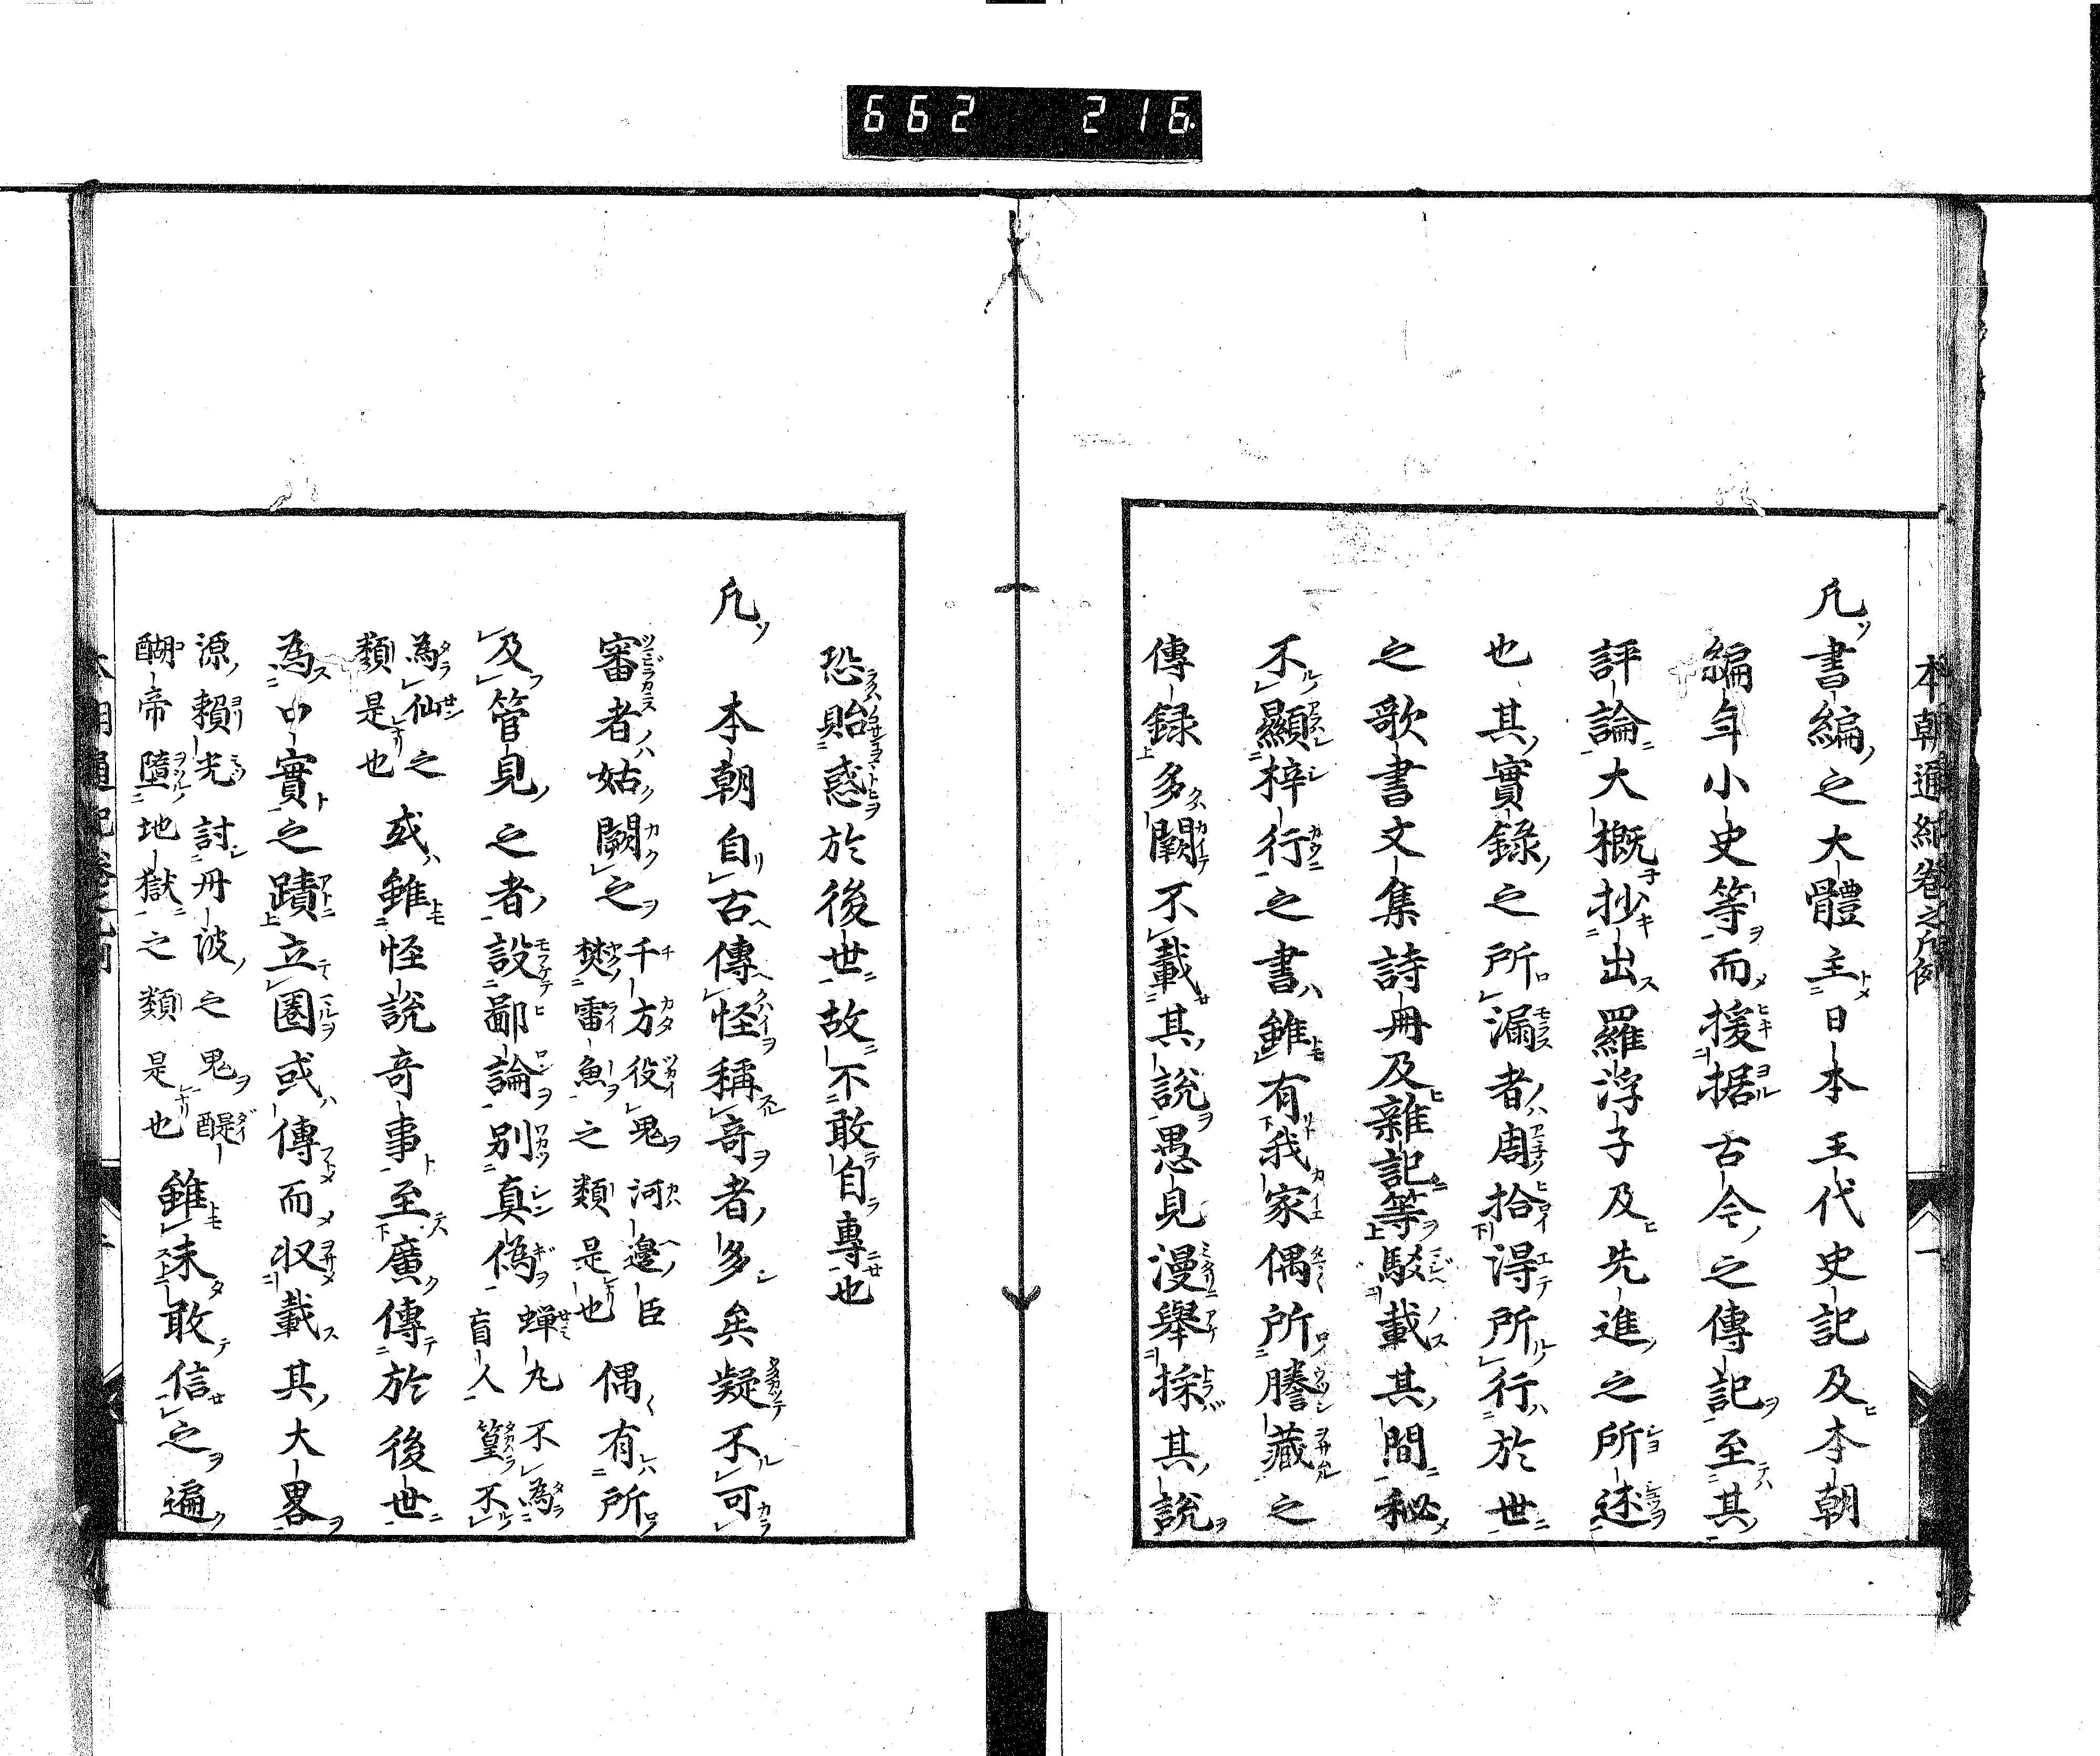 662 216
凡書編之大體主日本王代史記及本朝
編年小史等而援据古今之傳記至其
評論大概抄出羅浮子及先進之所述
也其實錄之所漏者周拾得所行於世
之歌書文集詩冊及雜記等駁載其間秘
不顯梓行之書雖有我家偶所謄藏之
傳録多闕不載其說愚見漫舉採其說
恐貽惑於後世故不敢自專也
凡本朝自古傳怪稱奇者多矣疑不可
審者姑闕之千方役鬼河邊臣樊雷魚之類是也偶有所
及管見之者設鄙論別真偽蝉丸不為盲人篁不
為仙之類是也或雖怪說奇事至廣傳於後世
為口實之蹟立圏或傳而収載其大畧
源賴光討丹波之鬼醍醐帝墮地獄之類是也雖未敢信之遍